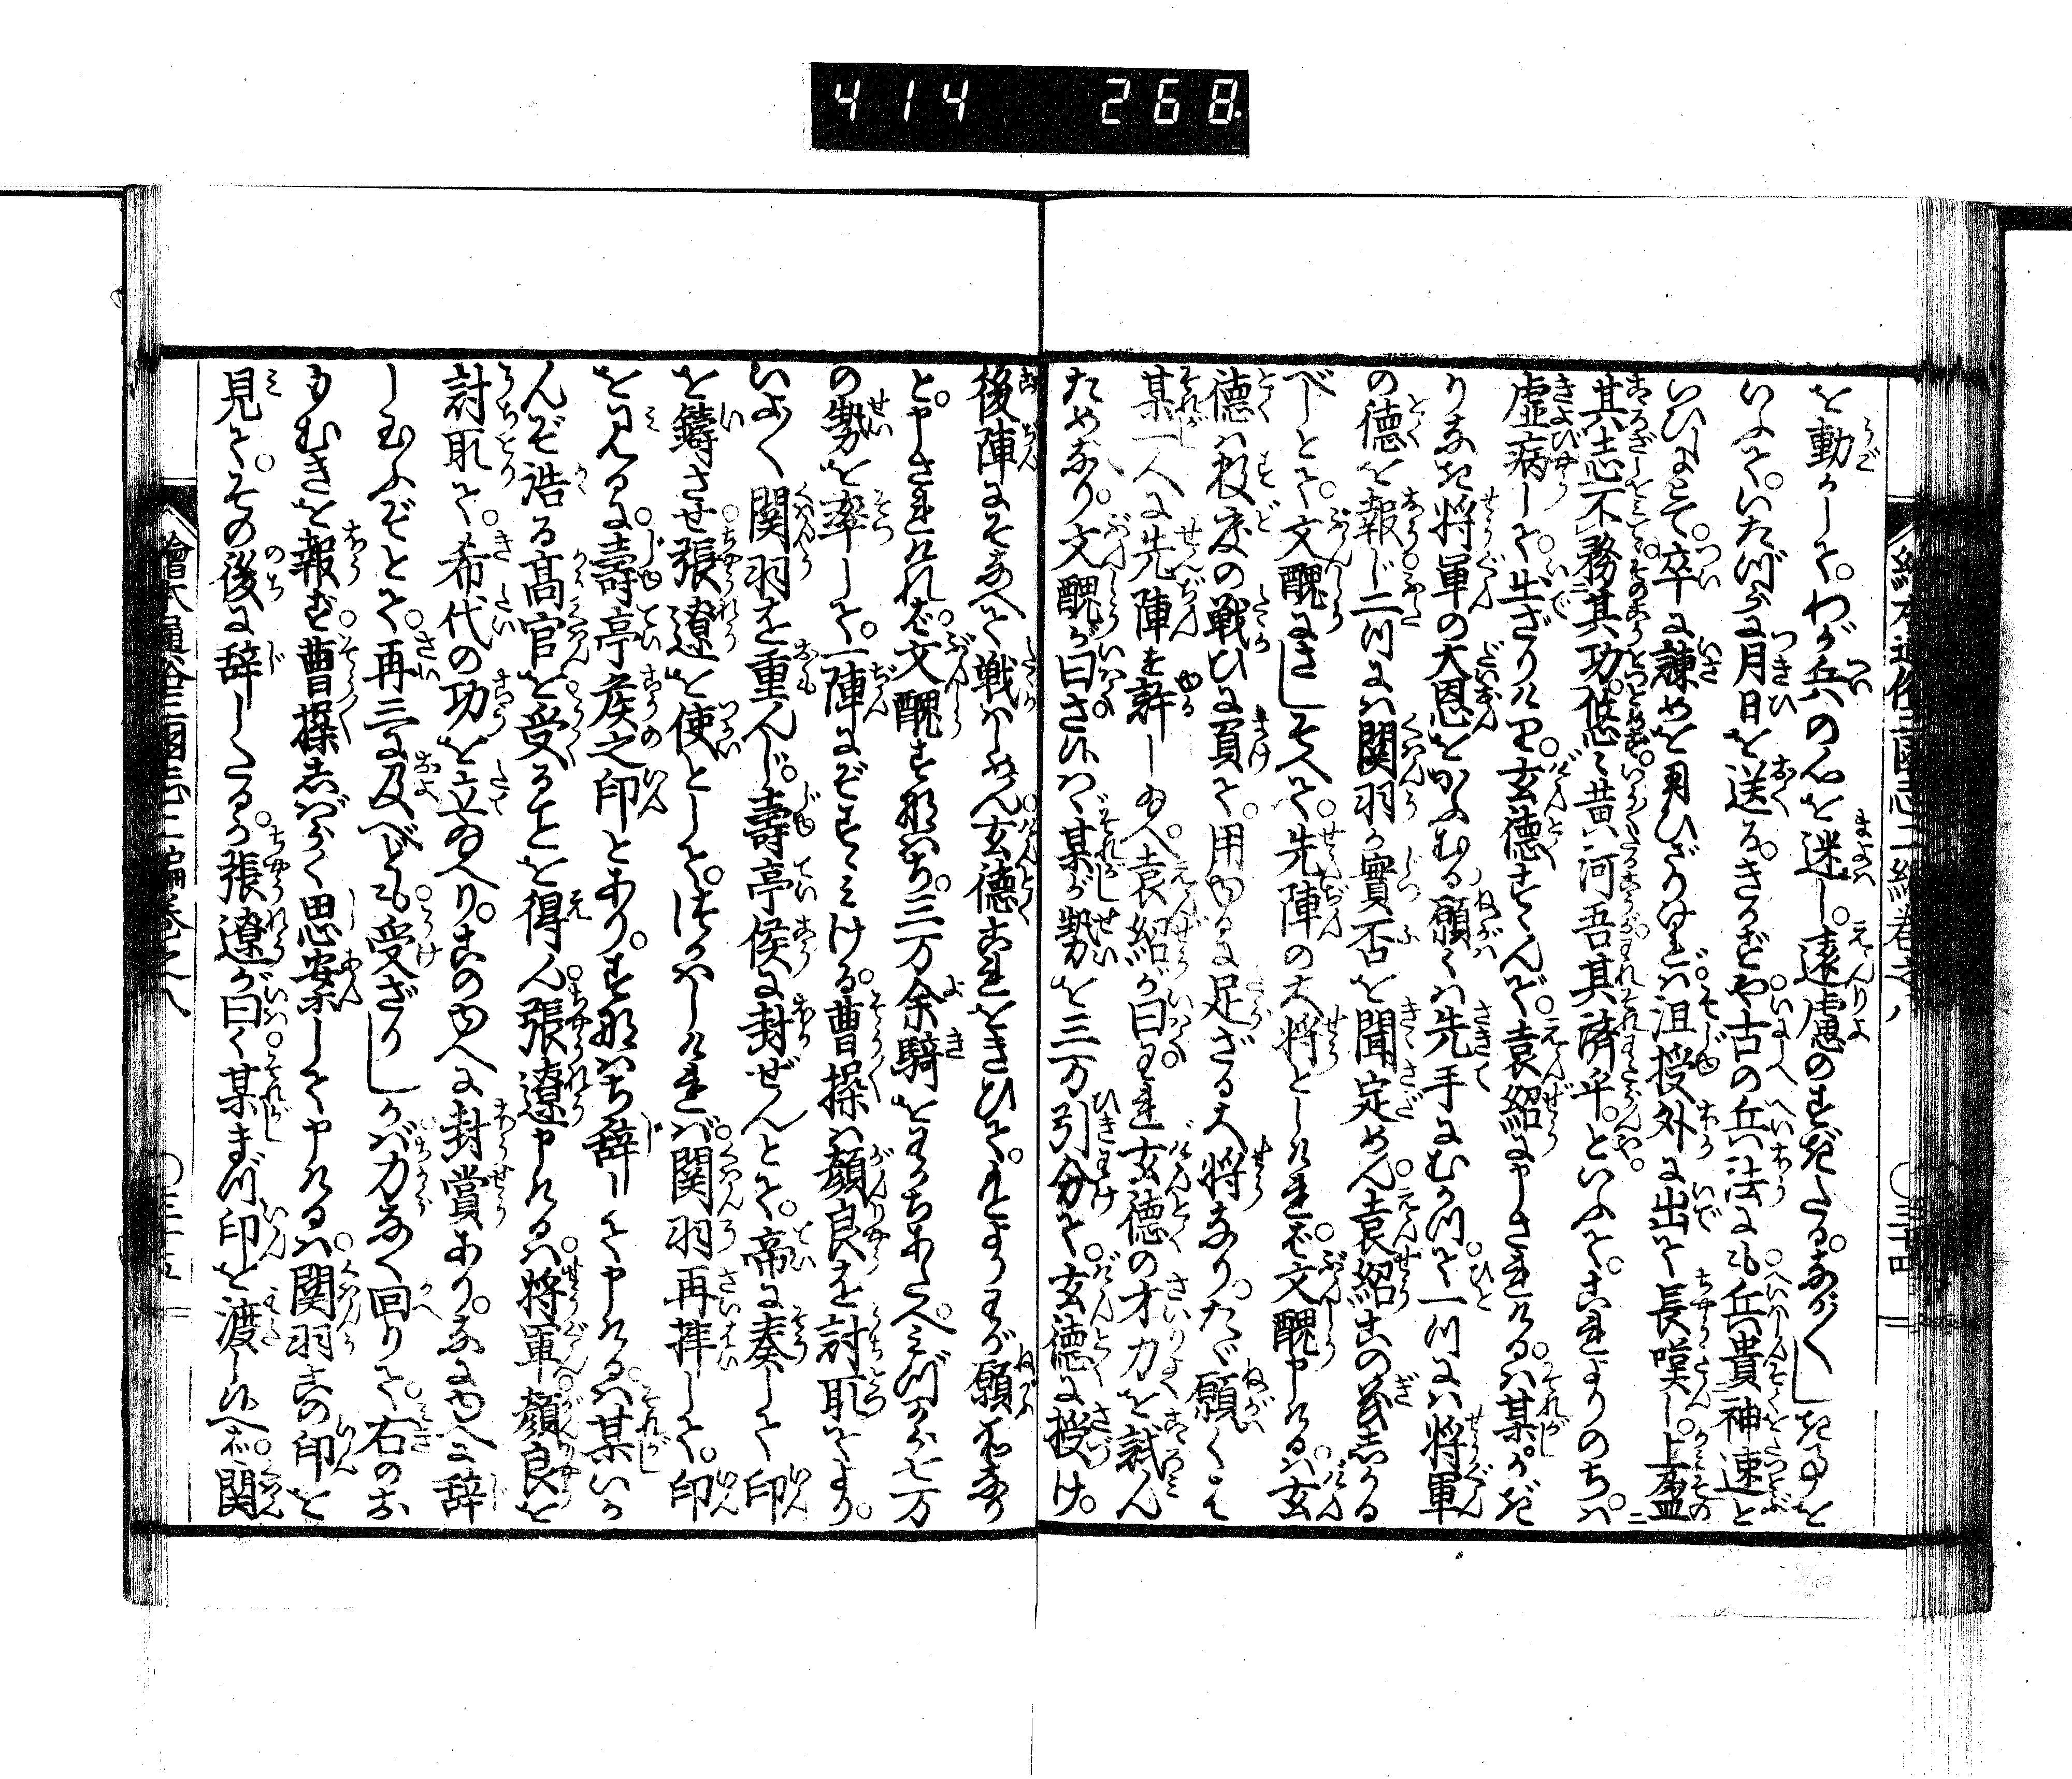 414 268
を動かして。わが兵の心を迷し。遠慮のすぎたる。ながくしき事を
いふて。いたづらに月日を送る。きかずや古の兵法にも兵貴神速と
いひしにとて。卒に諫めを用ひざりければ。沮授外に出て長嘆し。上盈
其志不務其功。悠々黄河吾其済乎。といふて。これよりのちは
虚病して出ざりけり。玄徳すゝんで。袁紹に申されけるは某。かぎ
りなき将軍の大恩をかふむる願くは先手にむかつて。一つには将軍
の徳を報じ二つには関羽が實否を聞定めん。袁紹この義しかる
べしとて。文醜にさしそへて。先陣の大将としければ。文醜申けるは。玄
徳は数度の戦ひに負て。用ゆるに足ざる大将なり。たゞ願くは
某一人に先陣を許し玉へ。袁紹が曰われ玄徳の才力を試ん
ためなり。文醜が曰さらば某が勢を三万引分て。玄徳に授け。
後陣にそなへて戦はしめん。玄徳これをきひて。それこそわが願ふ所なり
と。申されければ。文醜すなはち。三万余騎をわちあたへ。みづから七万
の勢を率して。一陣にぞすゝみける。曹操は顔良を討取てより。
いよ〱関羽を重んじ。壽亭侯に封ぜんとて。帝に奏して印
を鑄させ。張遼を使として。つかはしければ。関羽再拝して。印
を見るに。壽亭侯之印とあり。すなはち辞して申けるは。某いか
んぞ浩る高官を受ることを得ん。張遼申けるは。将軍。顔良を
討取て。希代の功を立玉へり。このゆへに封賞あり。なにゆへに辞
し玉ふぞとて。再三に及べども。受ざりしかば力なく回りて。右のお
もむきを報ず。曹操しばらく思案して申けるは。関羽この印を
見て。その後に辞したるか。張遼が曰く某まづ印を渡し候へば。関